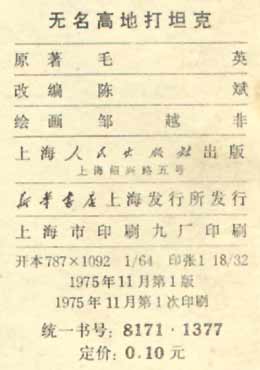 无名高地打坦克
原著 毛英
改编 陈斌
绘画 邹越非
上海人民出版社出版
上海绍兴路五号
新华书店上海发行所发行
上海市印刷九厂印刷
开本787×1092 1/64 印张1 18/32
1975年11月第1版
1975年11月第1次印刷
统一书号：8171·1377
定价：0.10元